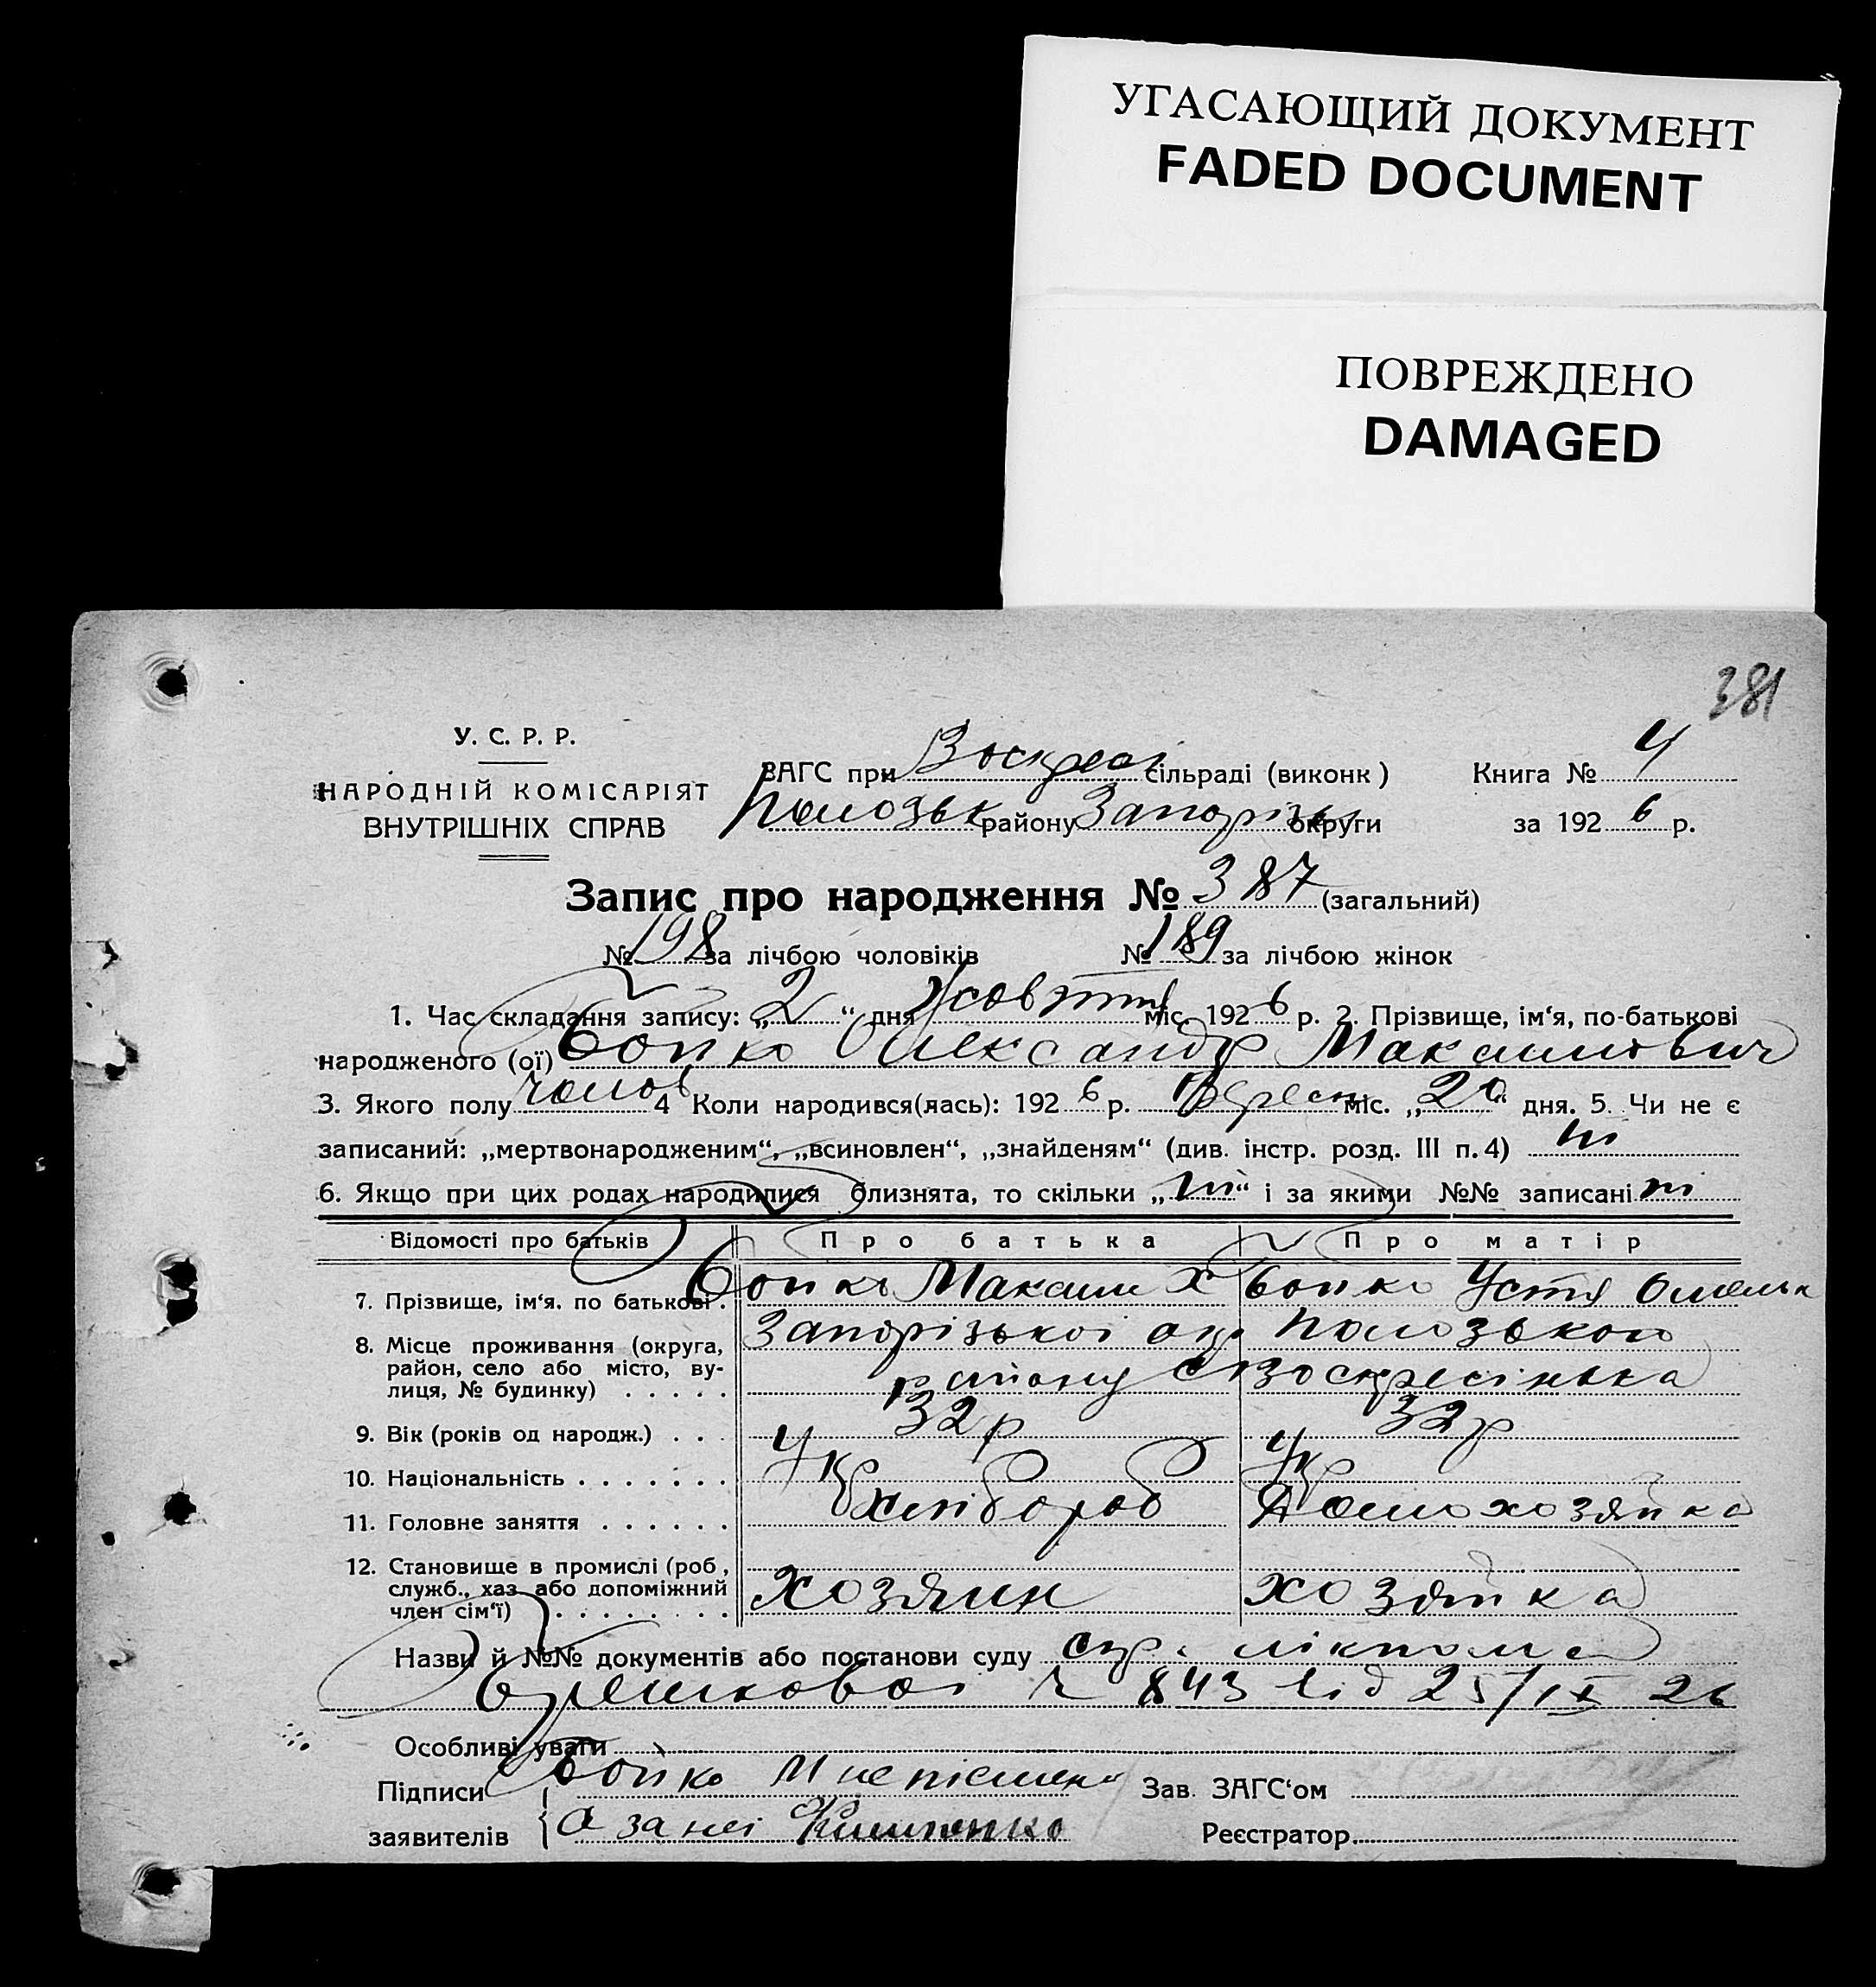 УГАСАЮЩИЙ ДОКУМЕНТ
FADED DOCUMENT
ПОВРЕЖДЕНО
DAMAGED
381
У. С. Р. Р.
НАРОДНІЙ КОМІСАРІЯТ
ВНУТРІШНІХ СПРАВ
ЗАГС при Воскресі сільраді (виконк) Книга № 4
Пологзьк району Запорізьк округи за 1926 р.
Запис про народження № 387 (загальний)
№ 198 за лічбою чоловіків № 189 за лічбою жінок
1. Час складання запису: „2“ дня Жовтня міс. 1926 р. 2. Прізвище, ім‘я, по-батькові
народженого (ої) Бойко Олександр Максимович
3. Якого полу чолов 4 Коли народився(лась): 1926 р. Вересн міс. „20“ дня. 5. Чи не є
записаний: „мертвонародженим“, „всиновлен“, „знайденям“ (див. інстр. розд. III п. 4) ні
6. Якщо при цих родах народилися близнята, то скільки „ні“ і за якими №№ записані ні
Відомості про батьків Про батька Про матір
7. Прізвище, ім‘я. по батькові. Бойко Максим Х Бойко Устя Омельк
8. Місце проживання (округа, район, село або місто, вулиця, № будинку) . . . . . Запорізької окр. Полозького
району с Воскресінька
9. Вік (років од народж.) . . . 32 р 32 р
10. Національність . . . . . . . Укр Укр
11. Головне заняття . . . . . . Хлібороб Домохозяйка
12. Становище в промислі (роб, служб., хаз. або допоміжний член сім‘ї) . . . . . . . . Хозяин хозяйка
Назви й №№ документів або постанови суду
ч 843 від 25/IX 26
Особливі уваги
Підписи Бойко М неписьмен Зав. ЗАГС‘ом
заявителів а за неї Реєстратор